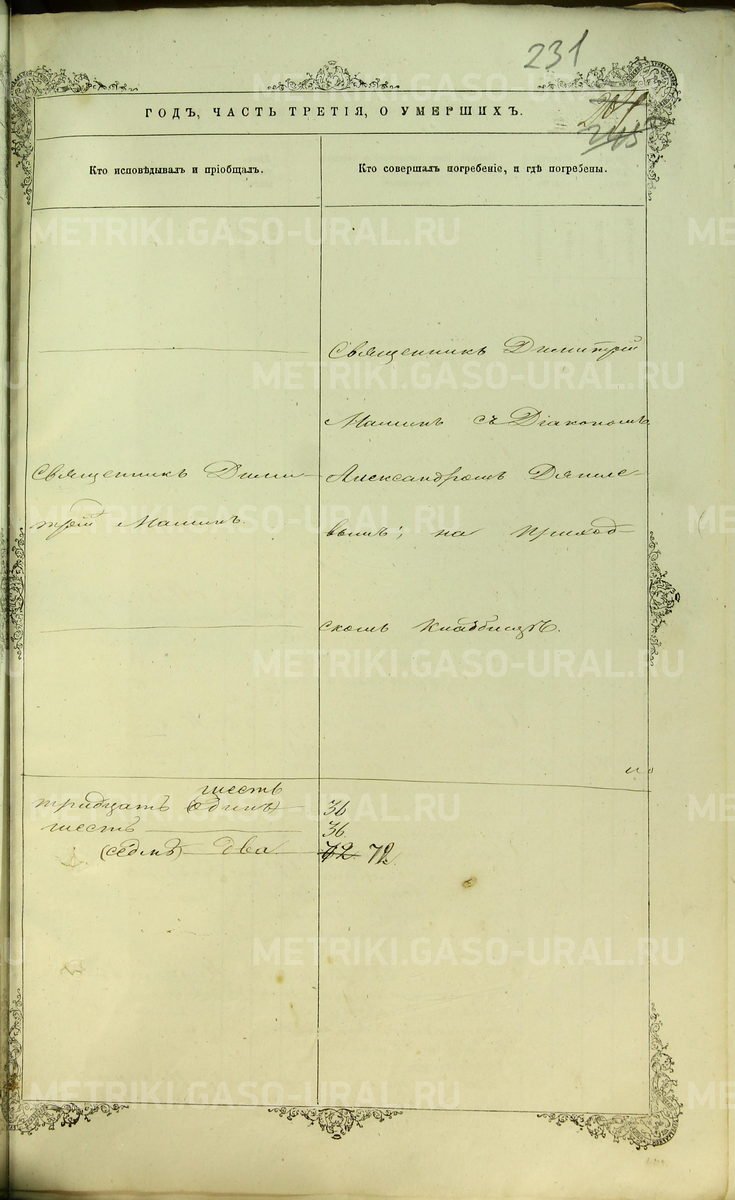 231
245
ГОДЪ, ЧАСТЬ ТРЕТІЯ, О УМЕРШИХЪ.
Кто исповѣдывалъ и пріобщалъ.
Кто совершалъ погребеніе, и гдѣ погребены.
Священникъ Дими-
трій Малинъ.
Священникъ Димитрій
Малинъ съ Діакономъ
Александромъ
вымъ; на приход-
скомъ кладбищѣ.
шесть
тридцать (одинъ) 36
шесть 36
(седмъ) два 72 72.
METRIKI.GASO-URAL.RU